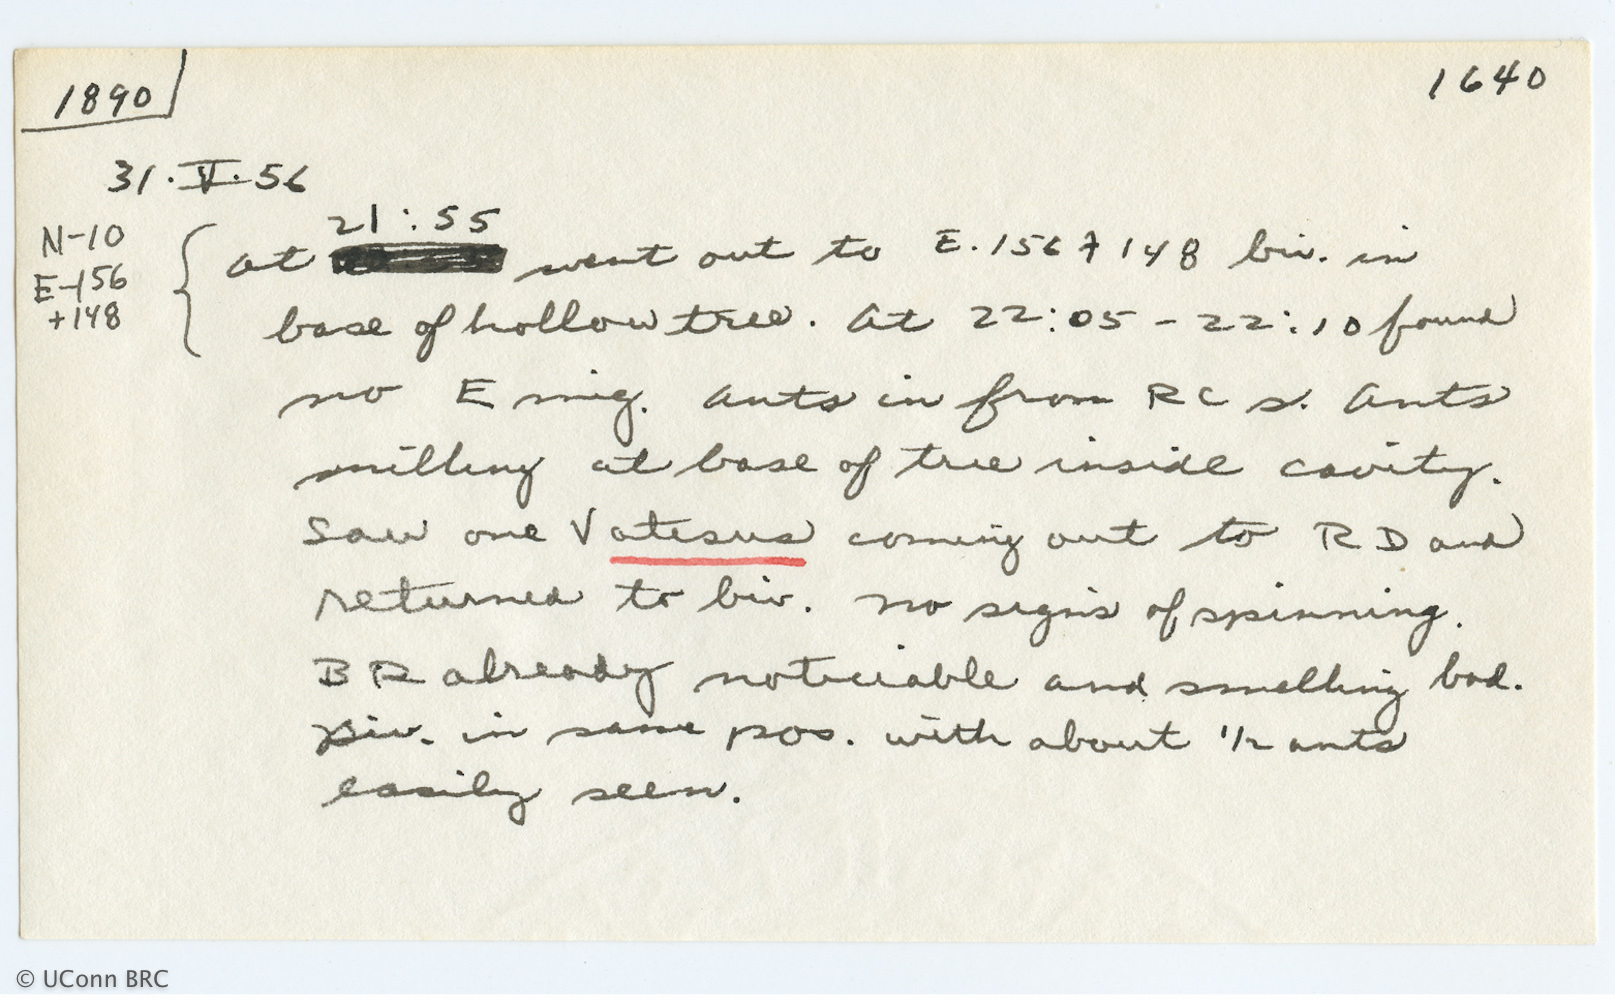 1890
1640
31.V.56
N-10
E-156
+148
21:55
at went out to E.156+148 biv. in
base of hollow tree. At 22:05-22:10 found
no Emig. Ants in from RC s. Ants
milling at base of tree inside cavity.
Saw one Vatesus coming out to RD and
returned to biv. No signs of spinning.
BR already noticiable and smelling bad.
Biv. in same pos. with about 1/2 ants
easily seen.
© UConn BRC